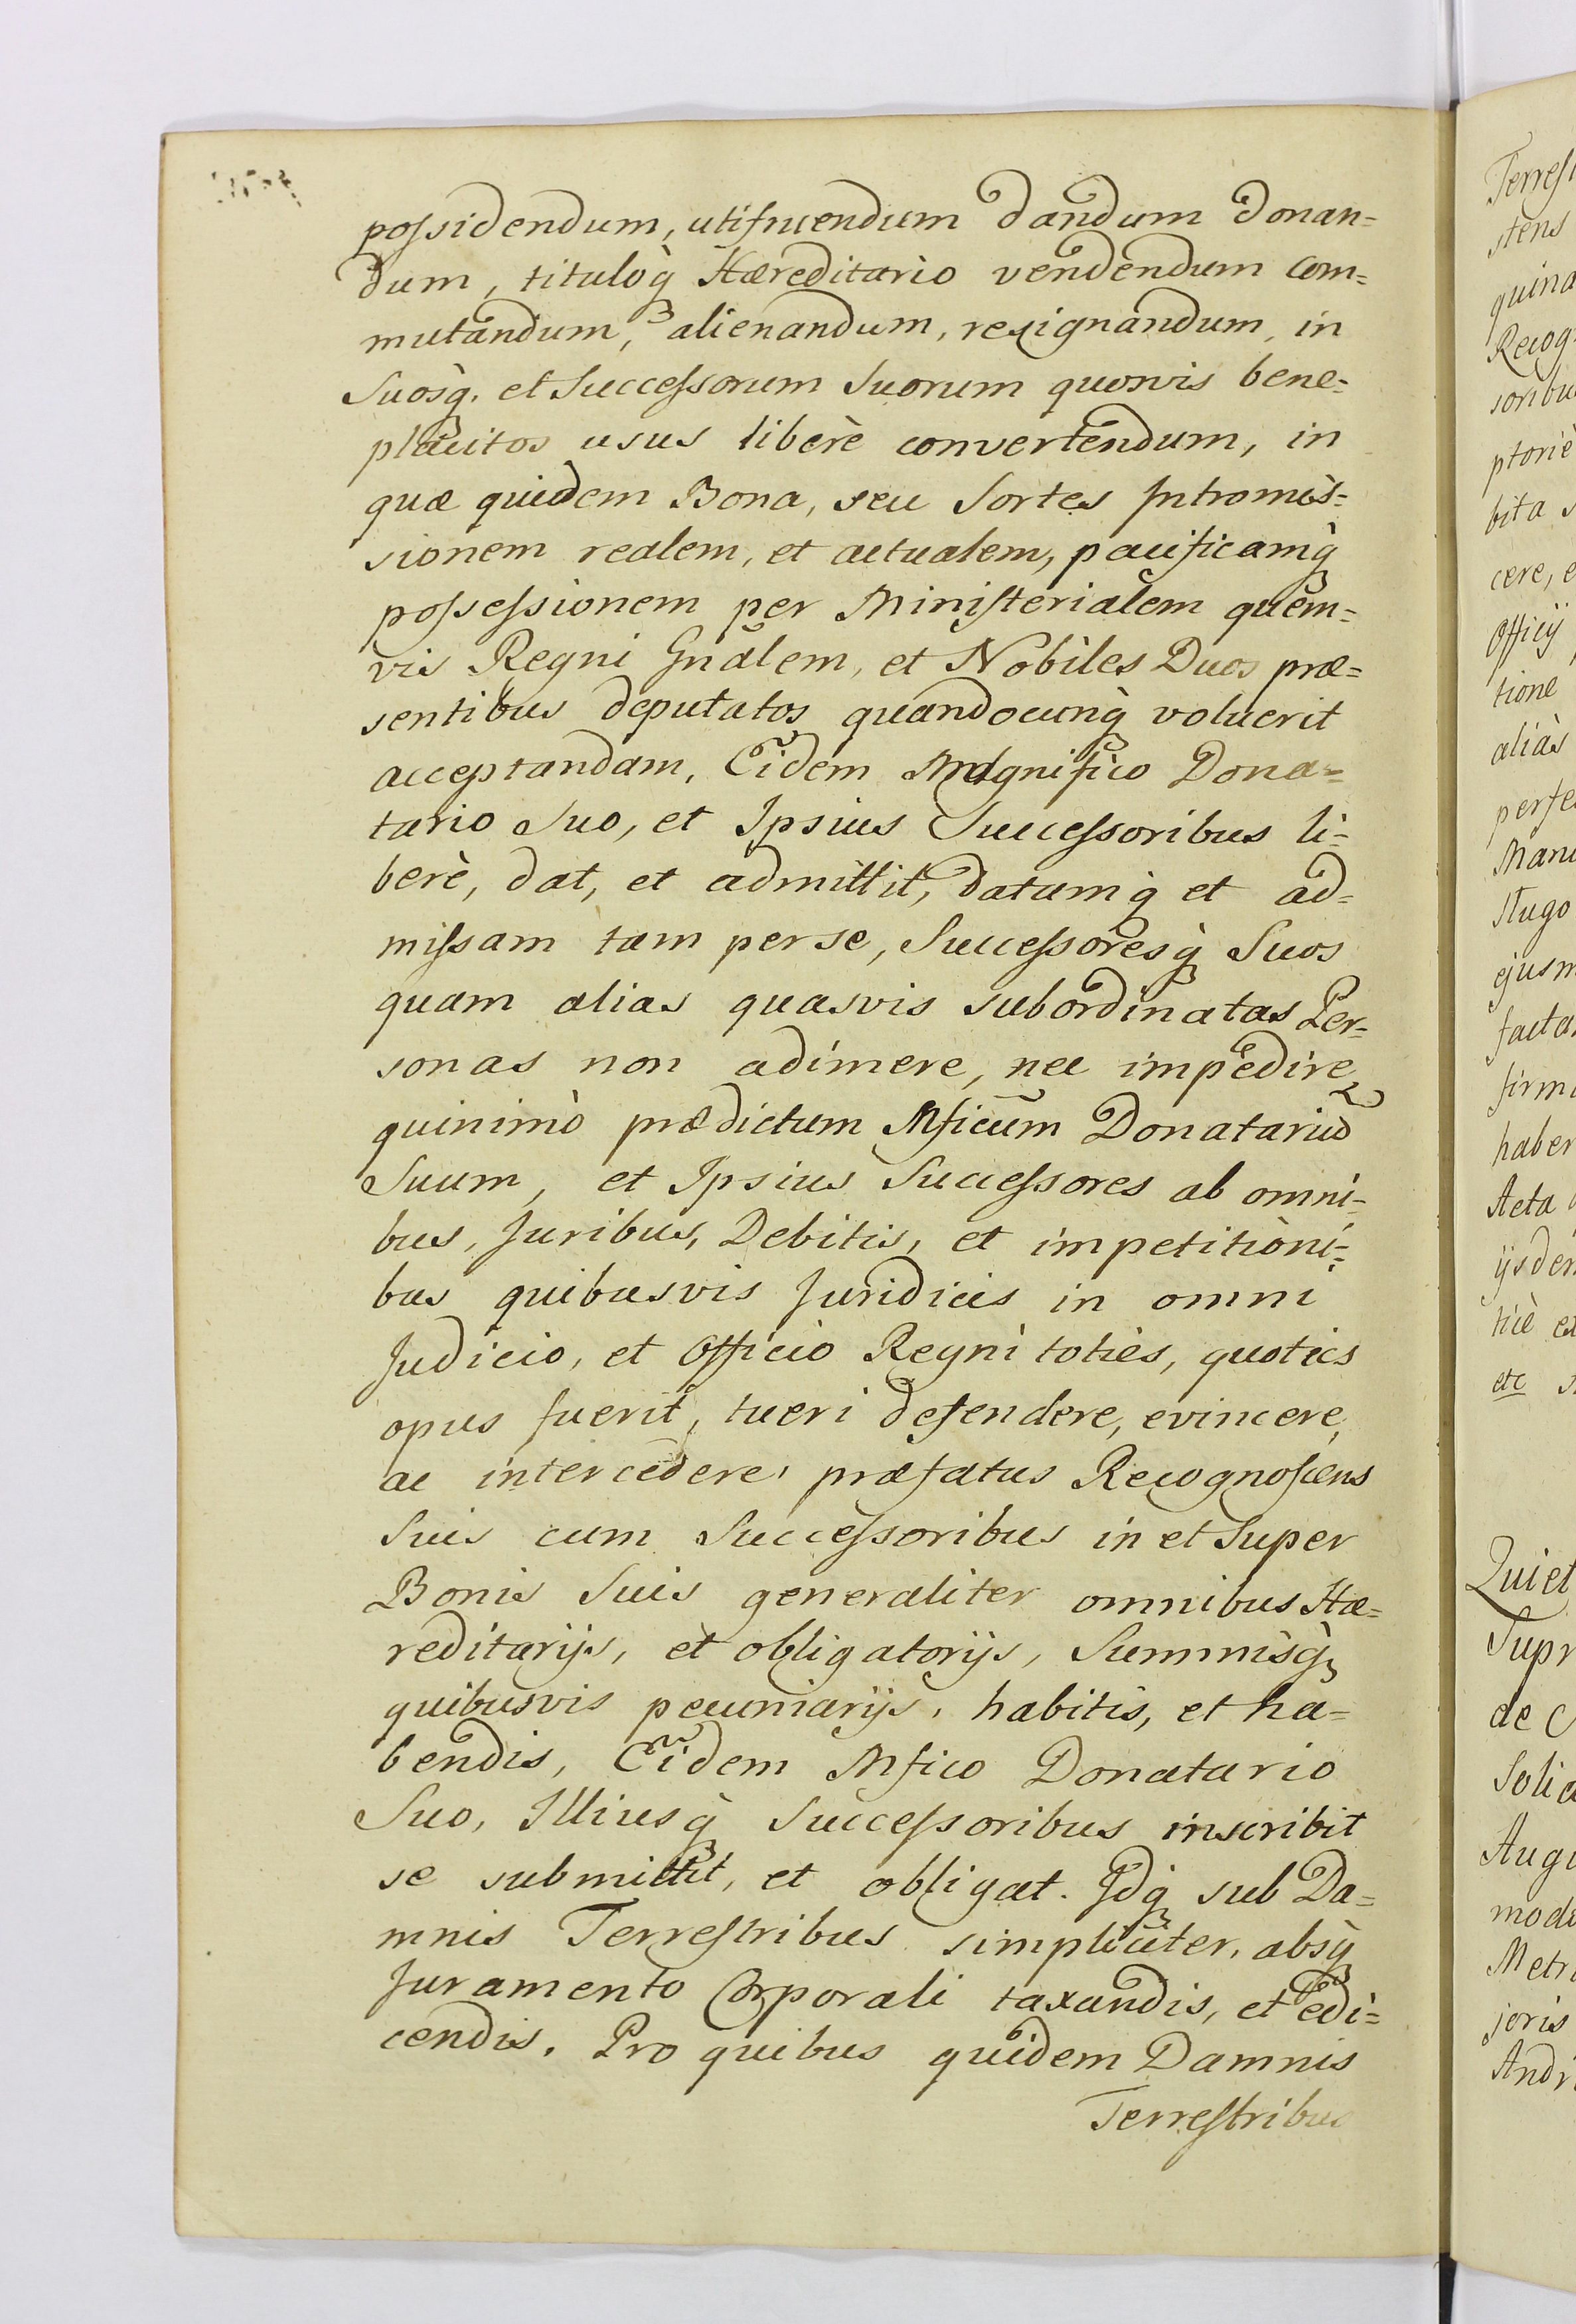 possidendum, utifruendum dandum donan=
dum, tituloq̀ Hæreditario vendendum com=
mutandum, alienandum, resignandum, in
Suosq̀. et Successorum Suorum quonvis bene=
placitos usus liberè convertendum, in
quæ quidem Bona, seu Sortes Intromis=
sionem realem, et actualem, pacificamq̀
possessionem per Ministerialem quem=
vis Regni Gnãlem, et Nobiles Duos præ=
sentibus deputatos quandocunq̀ voluerit
acceptandam, Eidem Magnifico Dona=
tario Suo, et Ipsius Successoribus li=
berè, dat, et admittit, datamq̀ et ad=
missam tam per se, Successoresq̀ Suos
quam alias quasvis subordinatas Per=
sonas non adimere, nec impedire
quinimò prædictum Mficum Donatariũ
Suum, et Ipsius Successores ab omni=
bus, Juribus, Debitis, et impetitioni=
bus quibusvis Juridicis in omni
Judicio, et Officio Regni toties, quoties
opus fuerit, tueri defendere, evincere,
ac intercedere, præfatus Recognoscens
Suis cum Successoribus in et Super
Bonis Suis generaliter omnibus Hæ=
reditarijs, et obligatorijs, Summisq̀
quibusvis pecuniarijs, habitis, et ha=
bendis, Eidem Mfico Donatario
Suo, Illiusq̀ Successoribus inscribit
se submittit, et obligat. Idq̀ sub Da=
mnis Terrestribus simpliciter, absq̀
Juramento Corporali taxandis, et edi=
cendis. Pro quibus quidem Damnis
Terrestribus
Terrest
stens
quina
Recog
soribu
ptoriè
bita s
cere, e
Officij
tione
aliàs
perfe
Man
Stugo
ejusm
facta
firm
haber
Acta
ijsdem
tiè et
etc s
Quiet
Supr
de C
Solic
Augu
mode
Metr
joris
Andr